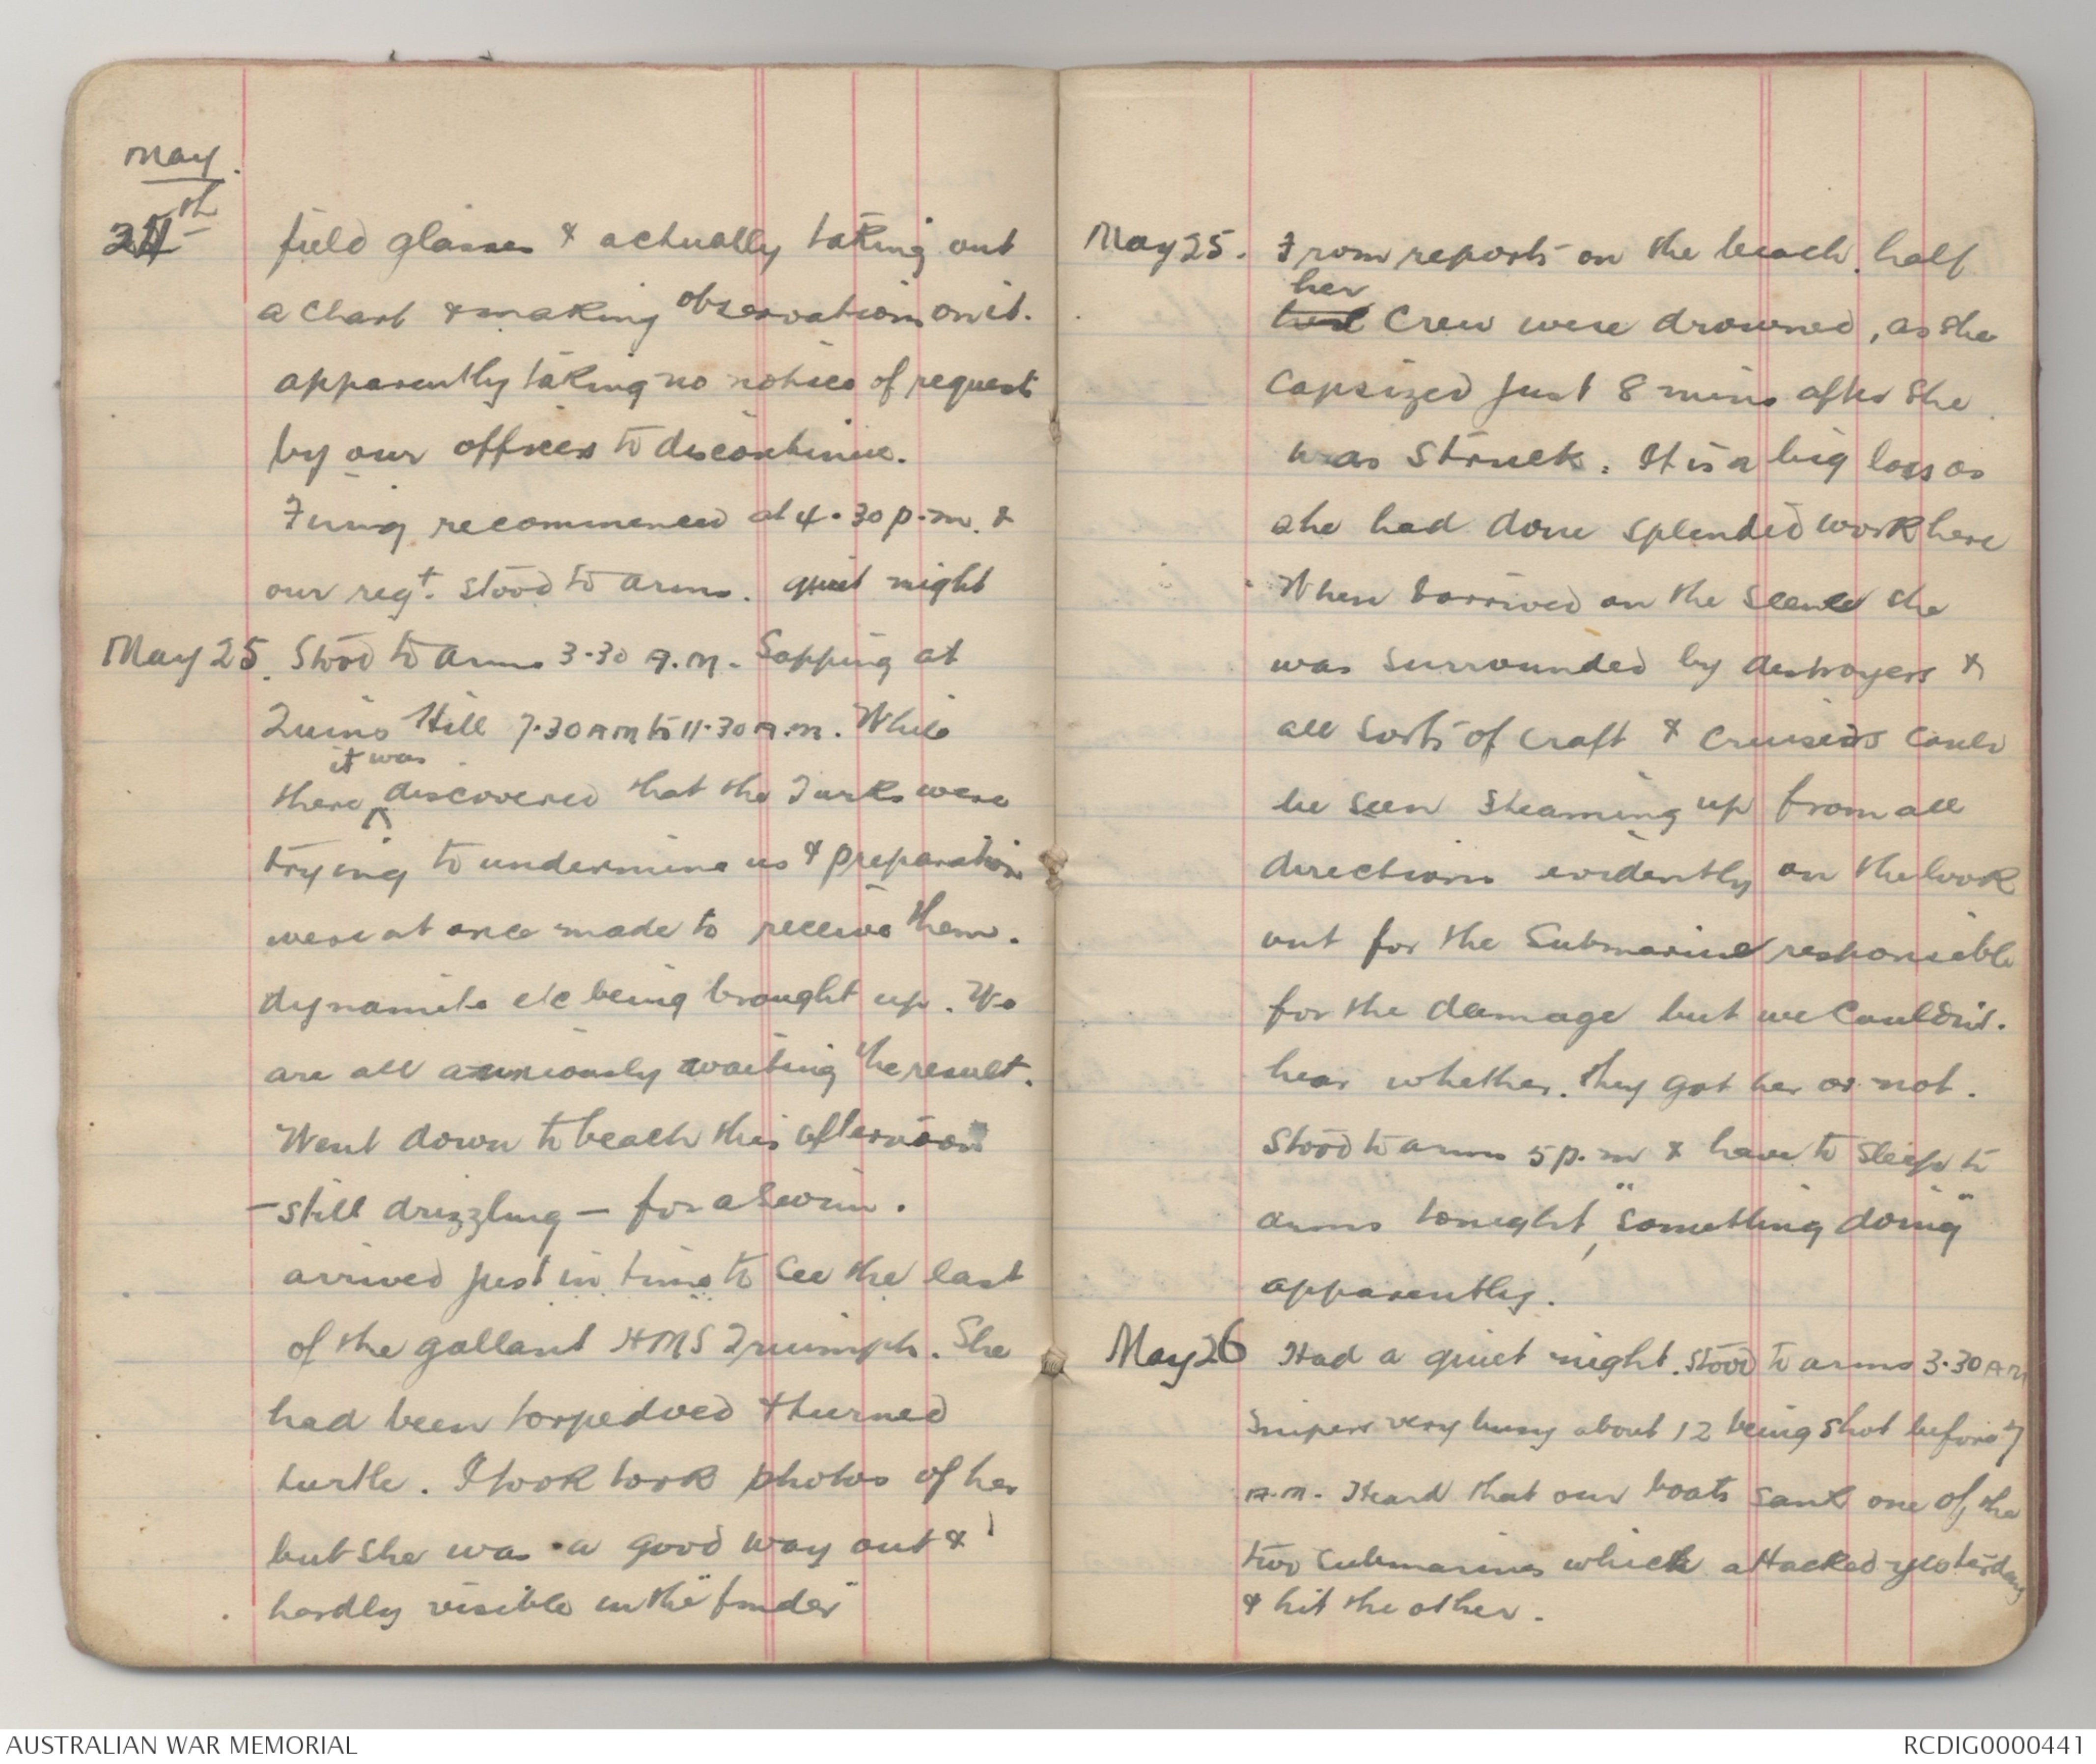 May
24th
field glasses & actually taking out
a chart & making observations on it.
apparently taking no notice of request
by our officers to discontinue.
Firing recommenced at 4.30 p.m. &
our regt. stood to arms. quiet night
May 25. Stood to arms 3.30 A.M. Sapping at
Quins Hill 7.30 AM to 11.30 A.M. While
it was
there ^ discovered that the Turks were
trying to undermine us & preparation
were at once made to receive them.
dynamite etc being brought up. We
are all anxiously waiting the result.
Went down to beach this afternoon
- still drizzling - for a swim.
arrived just in time to see the last
of the gallant HMS Triumph. She
had been torpedoed & turned
turtle. I took took photos of her
but she was a good way out &
hardly visible in the "finder"
May 25. From reports on the beach half
her
crew were drowned, as she
capsized just 8 mins after she
was struck. It is a big loss as
she had done splendid work here
When I arrived on the scene she
was surrounded by destroyers &
all sorts of craft & cruisers could
be seen steaming up from all
directions evidently on the look
out for the submarine responsible
for the damage but we couldn't.
hear whether they got her or not.
Stood to arms 5 p.m & have to sleep to
arms tonight, "something doing"
apparently.
May 26 Had a quiet night. Stood to arms 3.30 AM
Snipers very busy about 12 being shot before 7
A.M. Heard that our boats sank one of the
two submarines which attacked yesterday
& hit the other.
AUSTRALIAN WAR MEMORIAL
RCDIG0000441